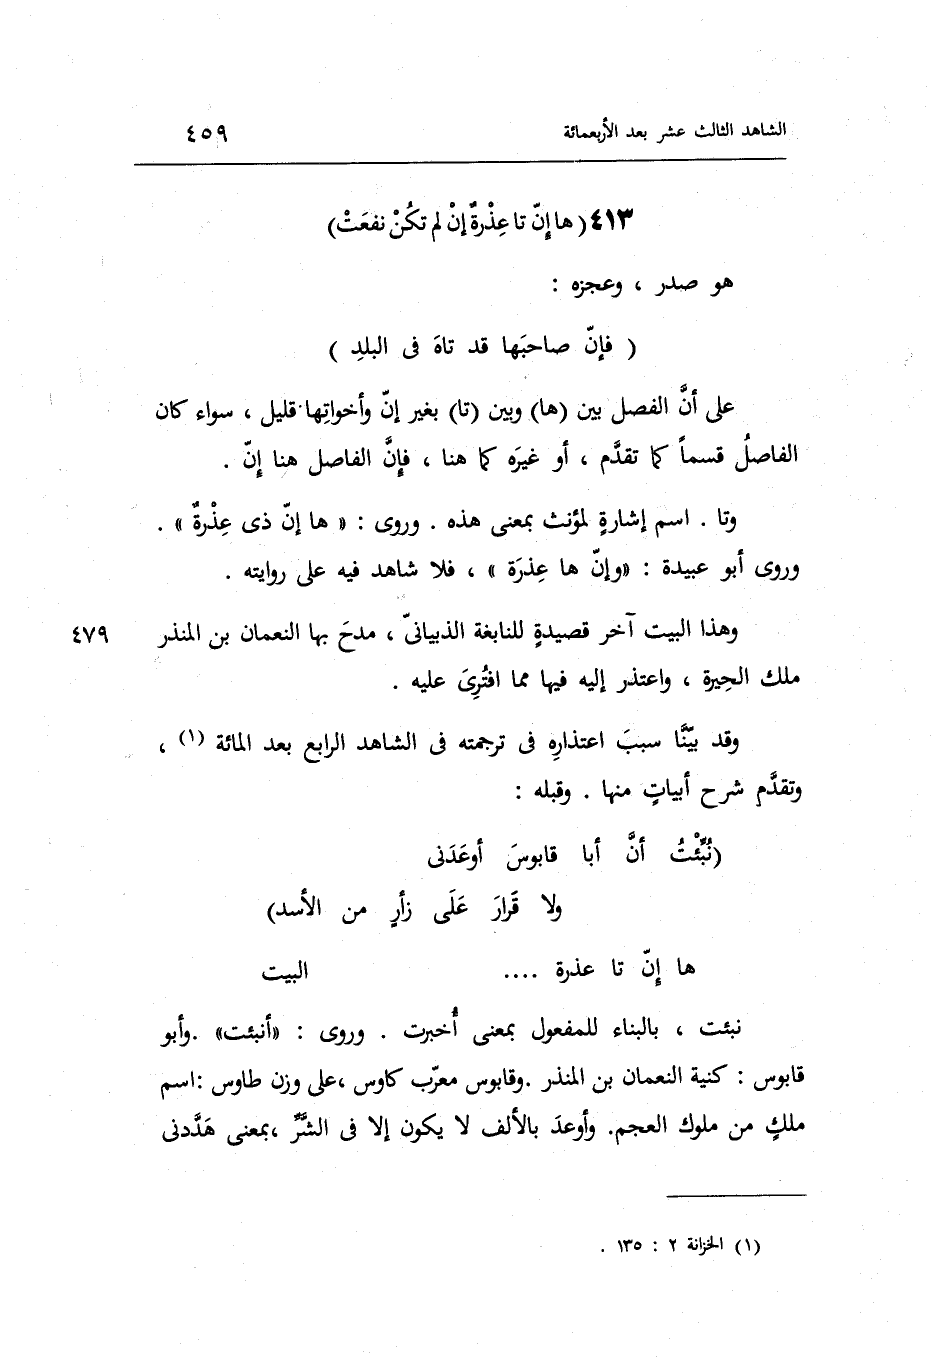 الشاهد الثالث عشر بعد الأربعمائة ٤٥٩
٤١٣ ( ها إنّ تا عِذْرةٌ إنْ لم تكُنْ نفعَتْ)
هو صدر ، وعجزه :
( فإنّ صاحبَها قد تاهَ فى البلدِ )
على أنَّ الفصل بين (ها) وبين (تا) بغير إنّ وأخواتِها قليل ، سواء كان
الفاصلُ قسماً كما تقدَّم ، أو غيرَه كما هنا ، فإنَّ الفاصل هنا إنّ .
وتا . اسم إشارةٍ لمؤنث بمعنى هذه . وروى : « ها إنّ ذى عِذْرةٌ » .
وروى أبو عبيدة : «وإنّ ها عِذرَة » ، فلا شاهد فيه على روايته .
وهذا البيت آخر قصيدةٍ للنابغة الذبيانىّ ، مدحَ بها النعمان بن المنذر ٤٧٩
ملك الحِيرة ، واعتذر إليه فيها مما افتُرِىَ عليه .
وقد بيّنَّا سببَ اعتذارِه فى ترجمته فى الشاهد الرابع بعد المائة (١) ،
وتقدَّم شرح أبياتٍ منها . وقبله :
(نُبِّئْتُ أنَّ أبا قابوسَ أوعَدَنى
ولا قَرارَ عَلَى زأرٍ من الأسد)
ها إنّ تا عذرة .... البيت
نبئت ، بالبناء للمفعول بمعنى أُخبرت . وروى : «أنبئت» .وأبو
قابوس : كنية النعمان بن المنذر .وقابوس معرّب كاوس ،على وزن طاوس :اسم
ملكٍ من ملوك العجم. وأوعدَ بالألف لا يكون إلا فى الشَّرِّ ،بمعنى هَدَّدنى
(١) الخزانة ٢ : ١٣٥ .